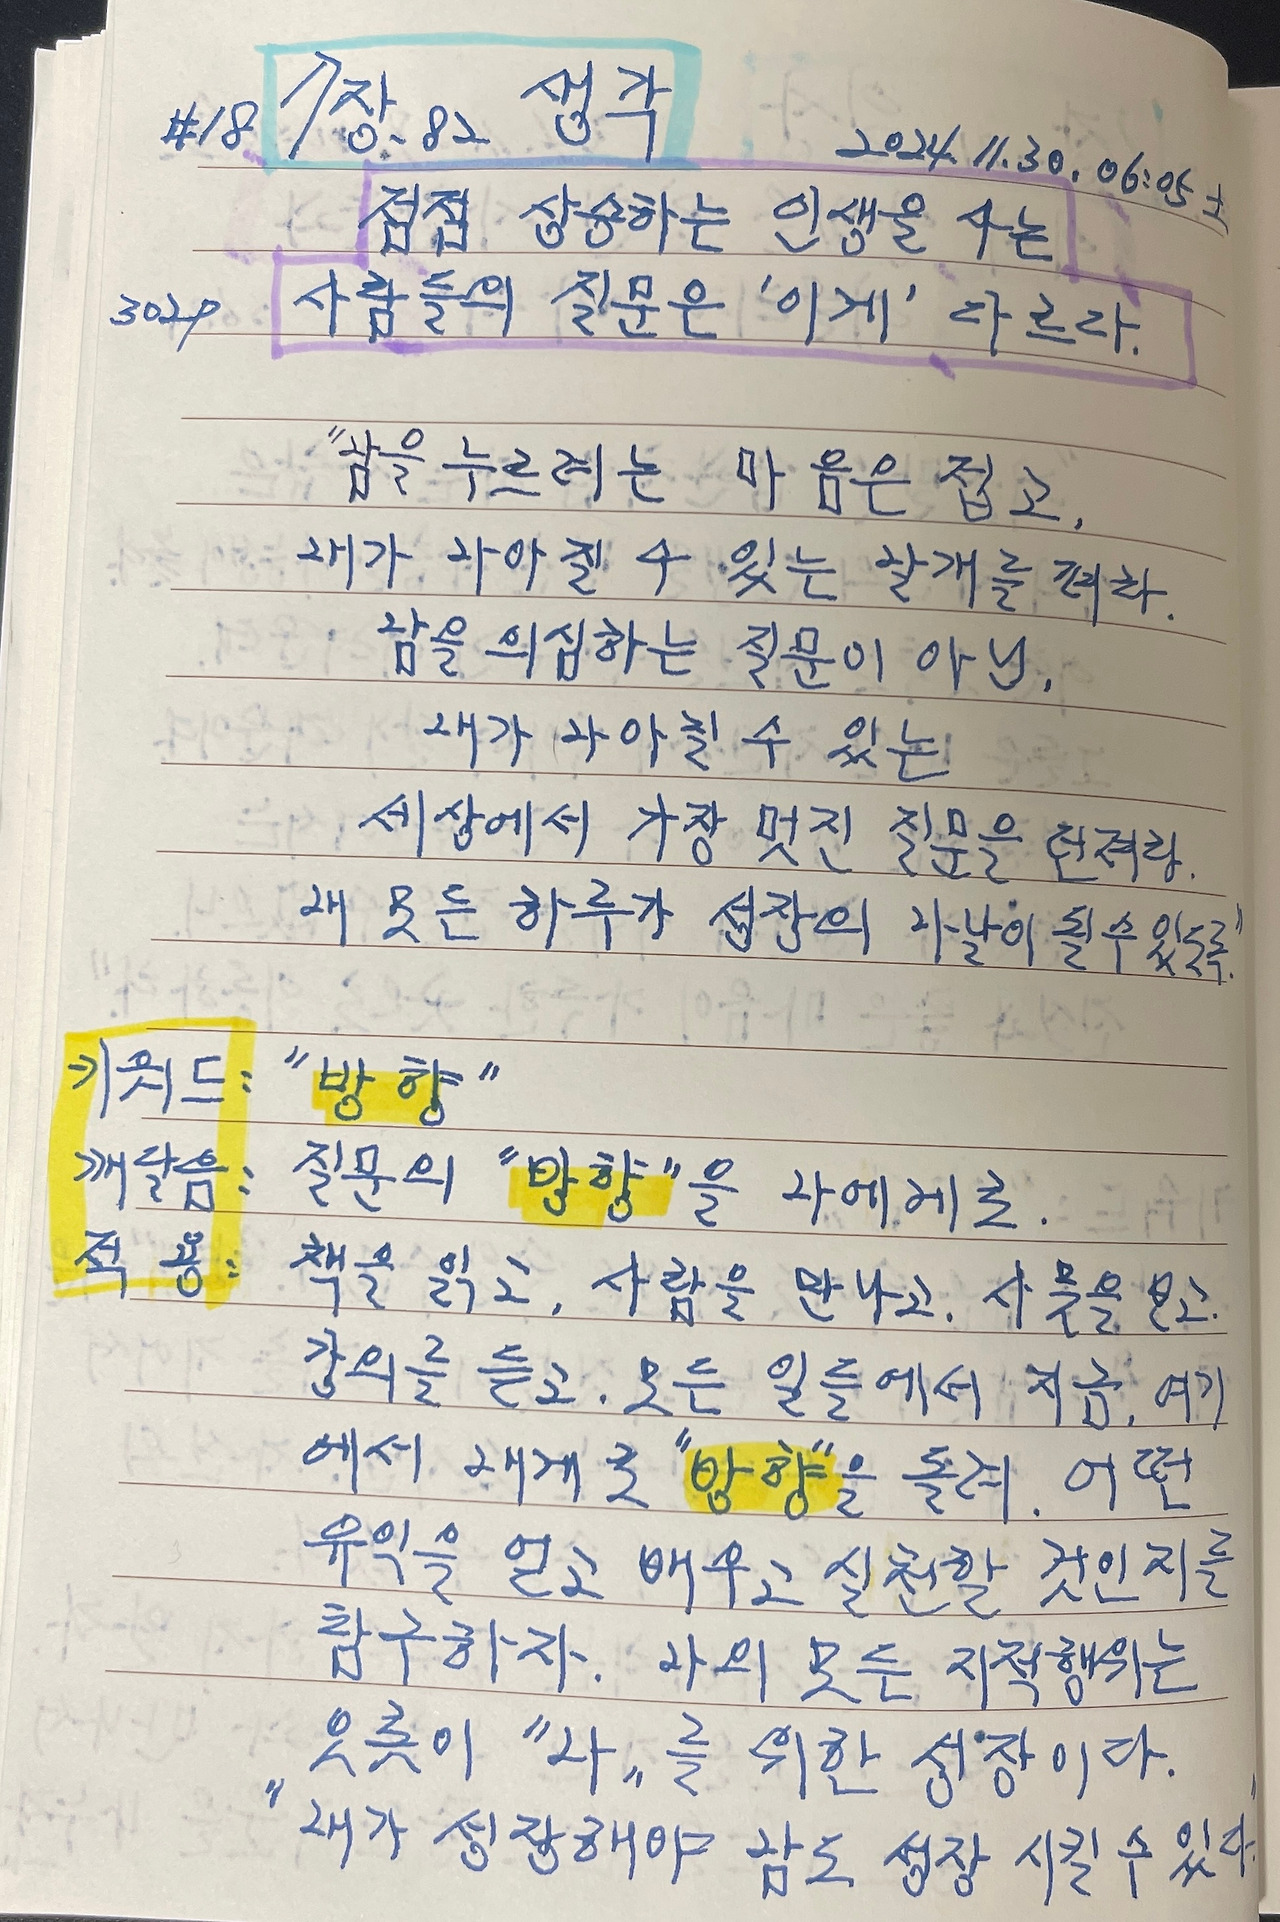 #18 7장-82 생각
2024. 11. 30. 06:05 토
점점 상승하는 인생을 사는
302p 사람들의 질문은 '이게' 다르다.
"남을 누르려는 마음은 접고,
내가 나아질 수 있는 날개를 펴라.
남을 의심하는 질문이 아닌,
내가 나아질 수 있는
세상에서 가장 멋진 질문을 던져라.
내 모든 하루가 성장의 나날이 될 수 있도록."
키워드: "방향"
깨달음: 질문의 "방향"을 나에게로.
적용: 책을 읽고, 사람을 만나고, 사물을 보고.
강의를 듣고. 모든 일들에서 지금, 여기
에서 내게로 "방향"을 돌려. 어떤
유익을 얻고 배우고 실천할 것인지를
탐구하자. 나의 모든 지적행위는
오롯이 "나"를 위한 성장이다.
"내가 성장해야 남도 성장 시킬 수 있다."